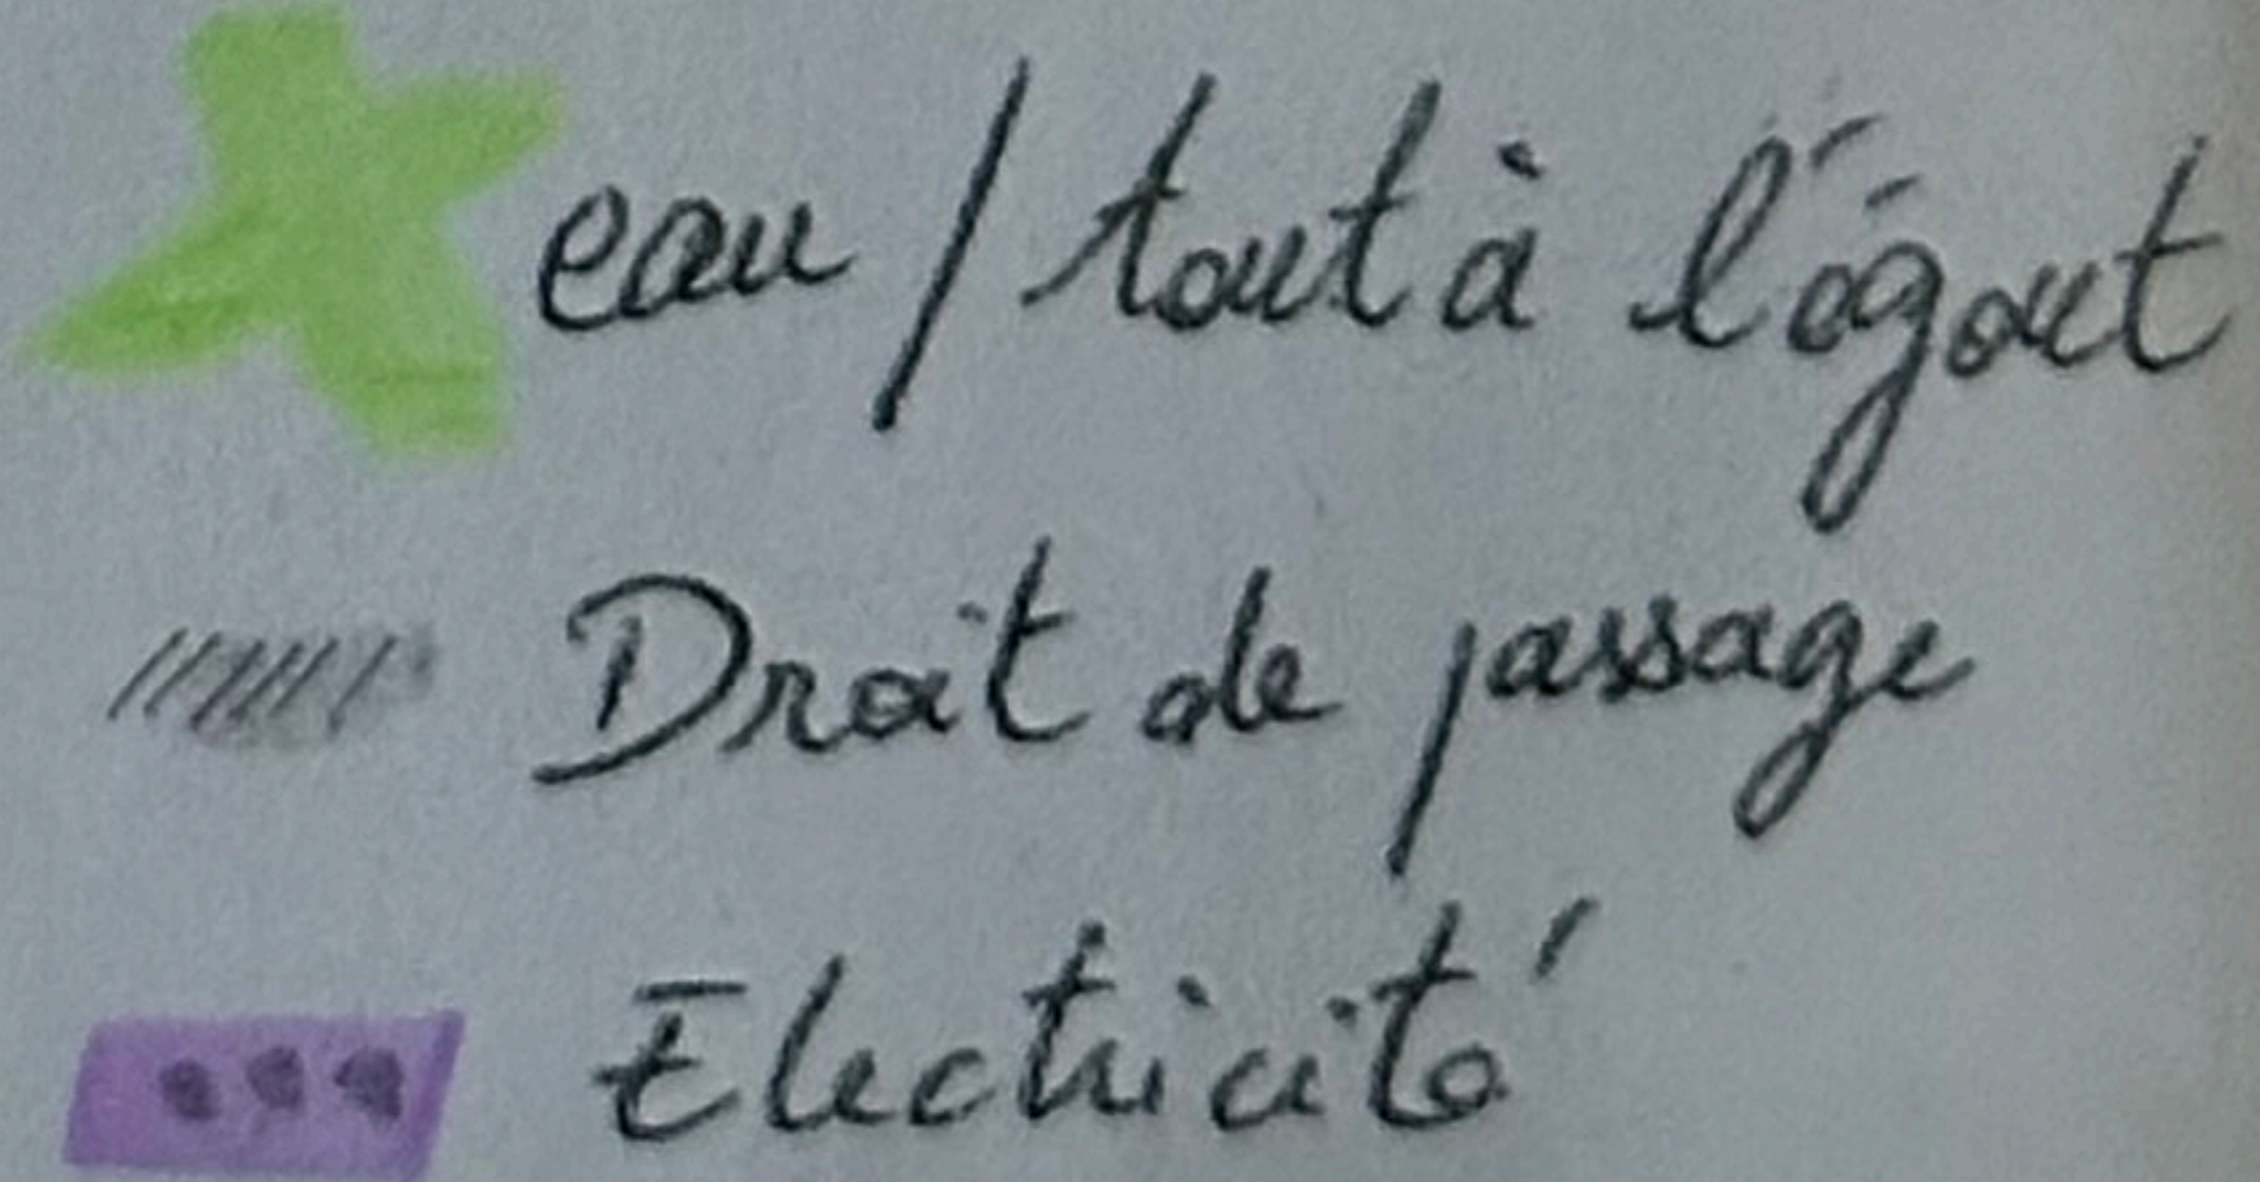 eau / tout à l'égout
Droit de passage
Electricité